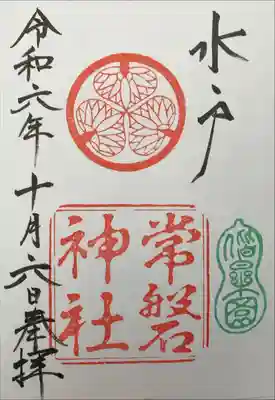 水戸
常磐
神社
偕楽園
令和六年 十月六日奉拝